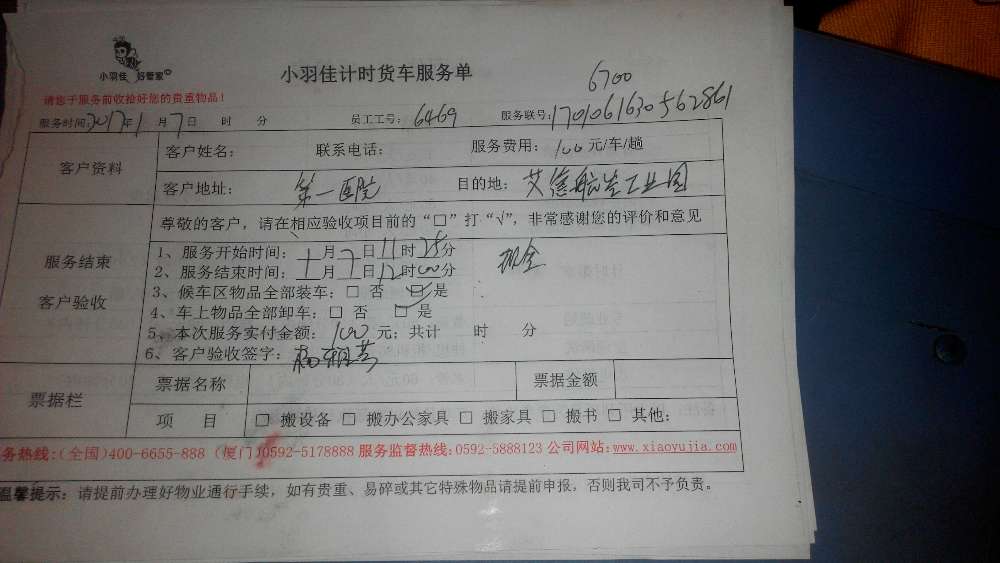 小羽佳 好管家
小羽佳计时货车服务单
6700
请您于服务前收拾好您的贵重物品！
服务时间：2017年1月7日 时 分 员工工号：6469 服务联号：1701061630562861
客户资料
客户姓名： 联系电话： 服务费用：100元/车/趟
客户地址：第一医院 目的地：
工业园
尊敬的客户，请在相应验收项目前的“□”打“√”，非常感谢您的评价和意见
服务结束
客户验收
1、服务开始时间：十月7日11时25分 现金
2、服务结束时间：十月7日12时00分
3、候车区物品全部装车：□ 否 □是
4、车上物品全部卸车：□ 否 □ 是
5、本次服务实付金额：100元；共计 时 分
6、客户验收签字：
票据栏
票据名称 票据金额
项 目 □ 搬设备 □ 搬办公家具 □ 搬家具 □ 搬书 □ 其他：
务热线：(全国)400-6655-888 (厦门)0592-5178888 服务监督热线：0592-5888123 公司网站：www.xiaoyujia.com
温馨提示：请提前办理好物业通行手续，如有贵重、易碎或其它特殊物品请提前申报，否则我司不予负责。